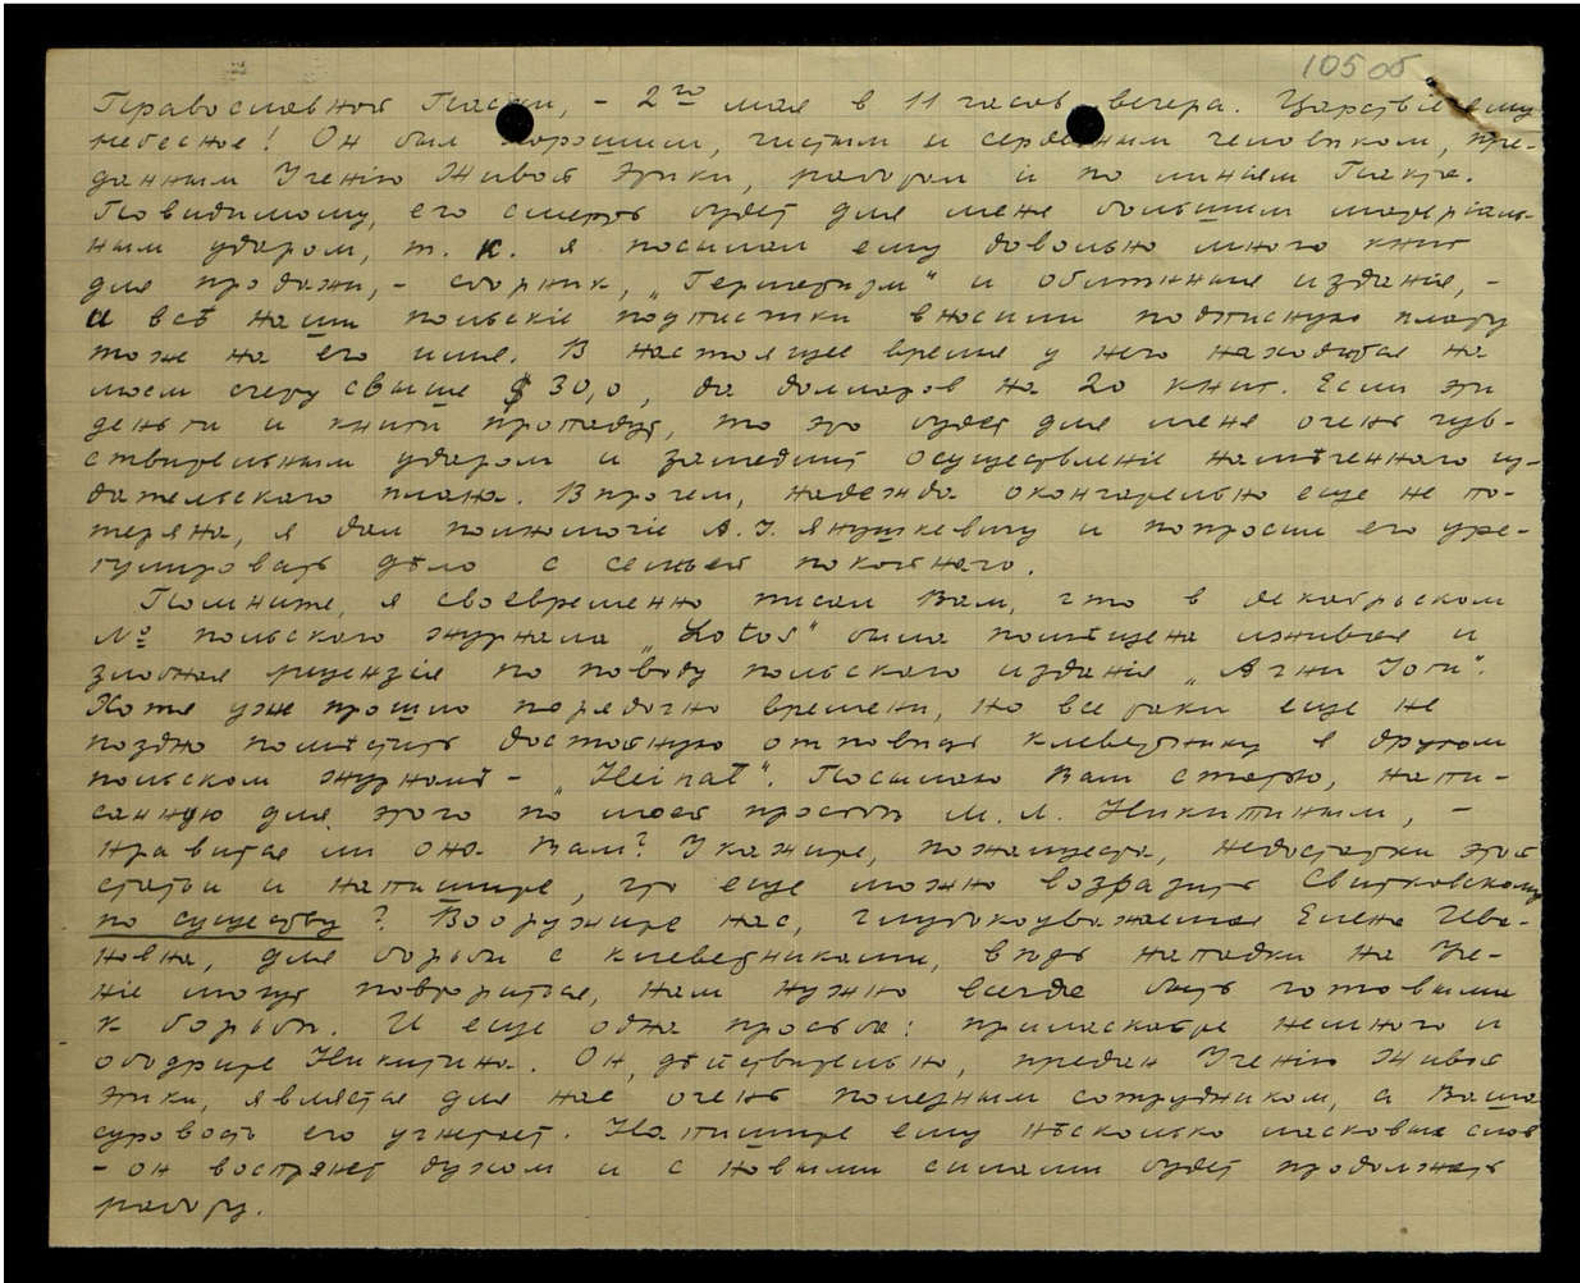 105об
Православной Пасхи, - 2го мая в 11 часов вечера. Царствіе ему
небесное! Он был хорошим, чистым и сердечным человѣком, пре-
данным Ученію Живой Этики, работал и по линіям Пакта.
Повидимому, его смерть будет для меня большим матеріаль-
ным ударом, т. к. я посылал ему довольно много книг
для продажи, - сборник, „Герметизм" и обыкнныя изданія, -
и всѣ наши польскіе подписчики вносили подписную плату
тоже на его имя. В настоящее время у него находится на
моем счету свыше $ 30,0, да долларов на 20 книг. Если эти
деньги и книги пропадут, то это будет для меня очень чув-
ствительным ударом и замедлит осуществленіе намѣченного из-
дательского плана. Впрочем, надежда окончательно еще не по-
теряна, я дал полномочіе А. І. Янушкевичу и попросил его уре-
гулировать дѣло с семьей покойного.
Помните, я своевременно писал Вам, что в декабрьском
№ польского журнала „Lotos" была помѣщена лживая и
злобная рецензія по поводу польского изданія „Агни Іоги".
Хотя уже прошло порядочно времени, но все таки еще не
поздно помѣстить достойную отповѣдь клеветнику в другом
польском журналѣ - „Hejnał". Посылаю Вам статью, напи-
санную для этого по моей просьбѣ М. Л. Никитиным, -
нравится ли она Вам? Укажите, пожалуйста, недостатки этой
статьи и напишите, что еще можно возразить Свитковскому
по существу? Вооружите нас, глубокоуважаемая Елена Ива-
новна, для борьбы с клеветниками, вѣдь нападки на Уче-
ніе могут повториться, нам нужно всегда быть готовыми
к борьбѣ. И еще одна просьба: приласкайте немного и
ободрите Никитина. Он, дѣйствительно, предан Ученію Живой
Этики, является для нас очень полезным сотрудником, а Ваша
суровость его угнетает. Напишите ему нѣсколько ласковых слов
- он воспрянет духом и с новыми силами будет продолжать
работу.